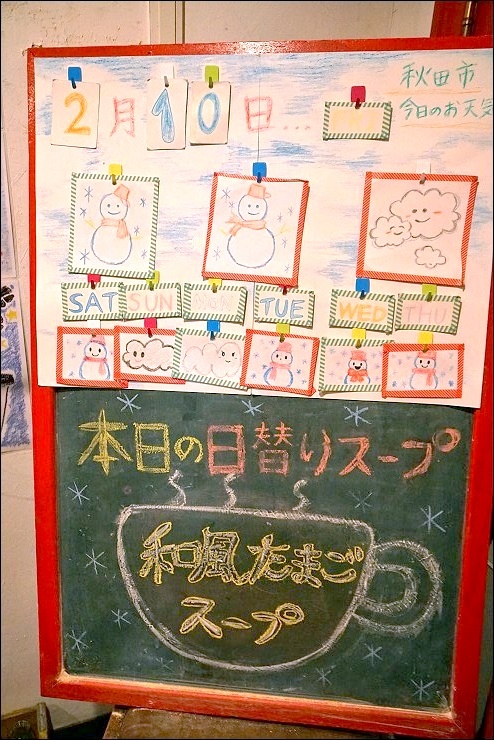 2月10日... FRI
秋田市
今日のお天気
SAT SUN MON TUE WED THU
本日の日替りスープ
和風たまご
スープ